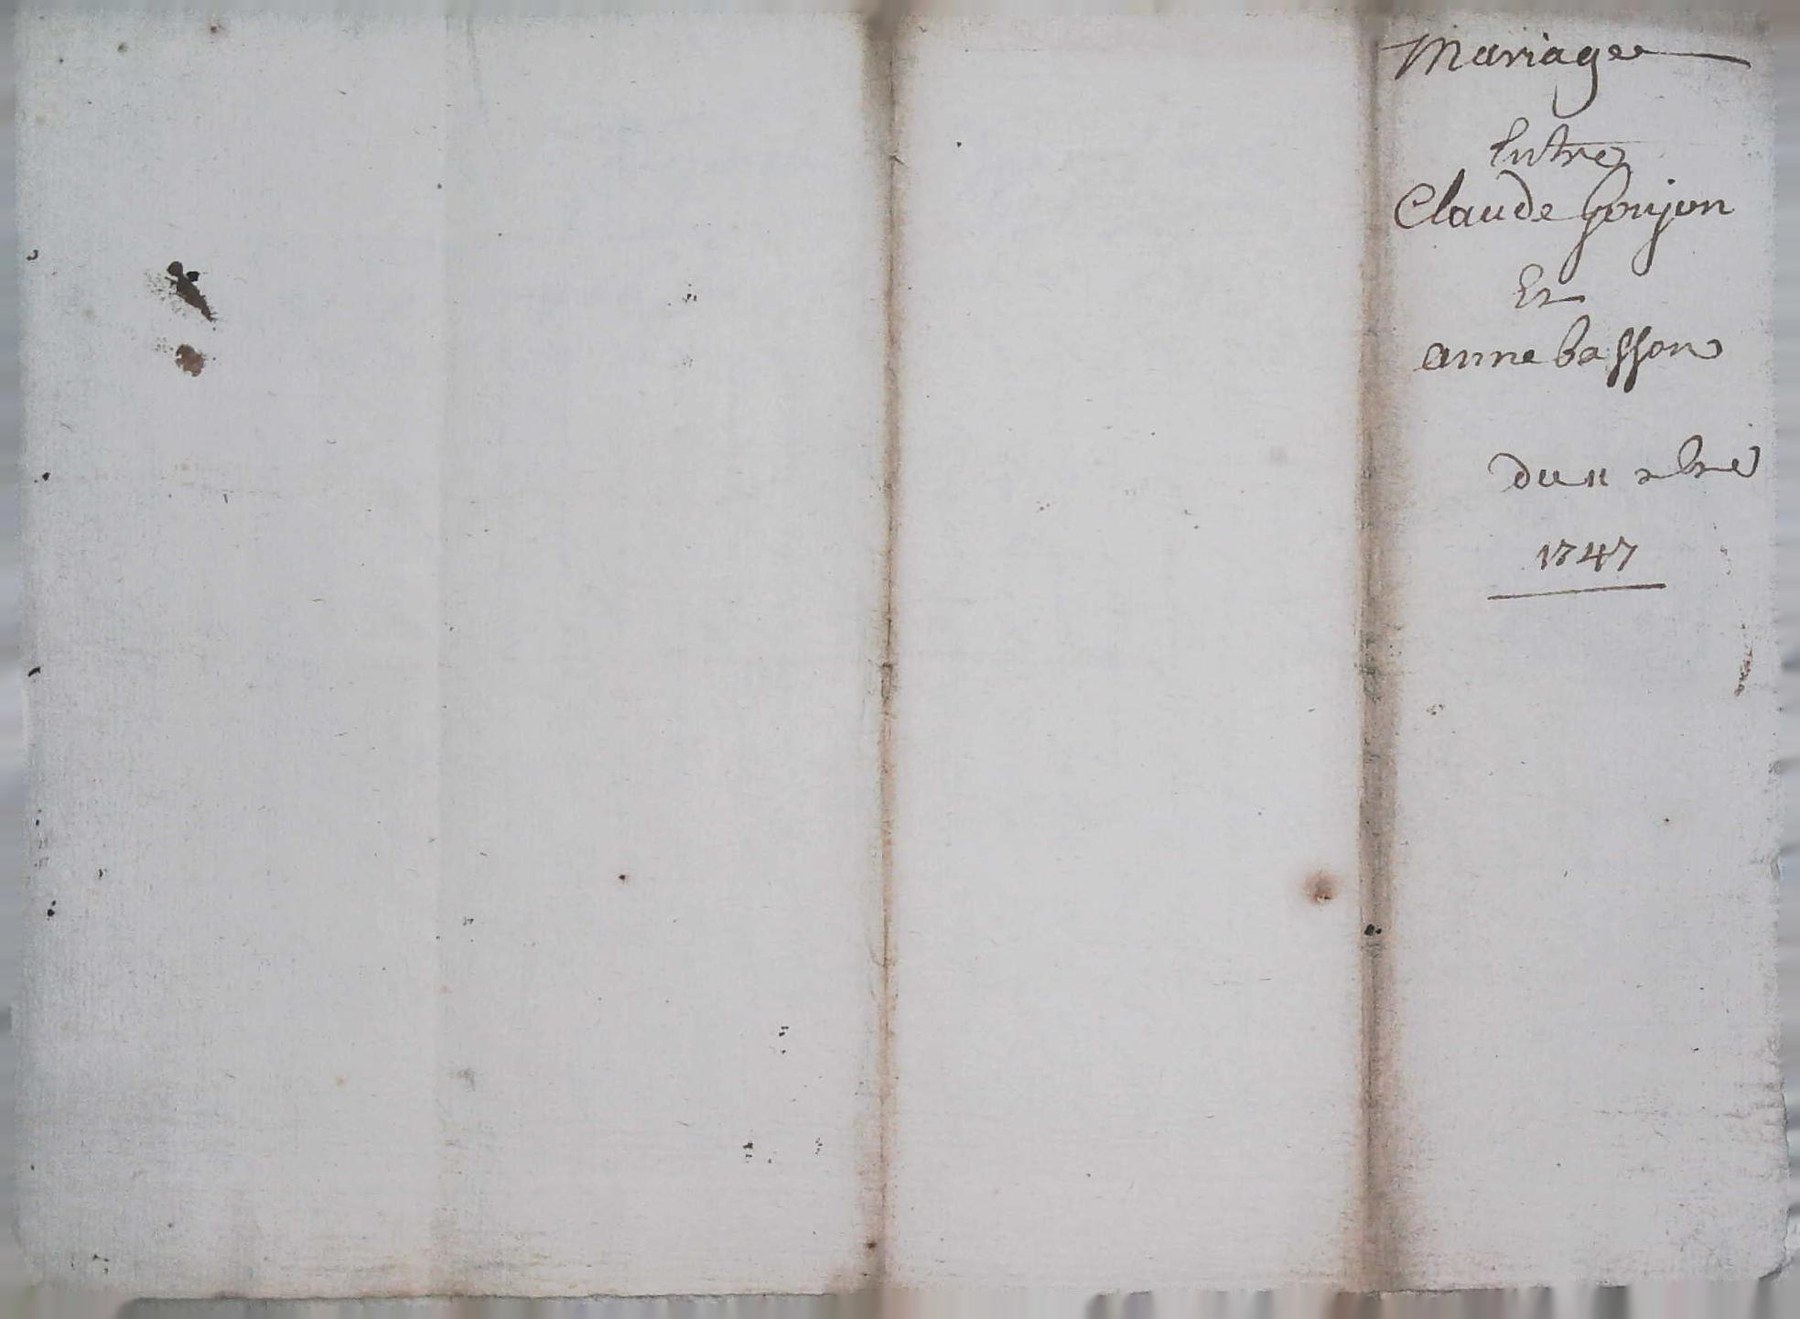 Mariage
Entre
Claude Goujon
Et
anne basson
du 11
1747